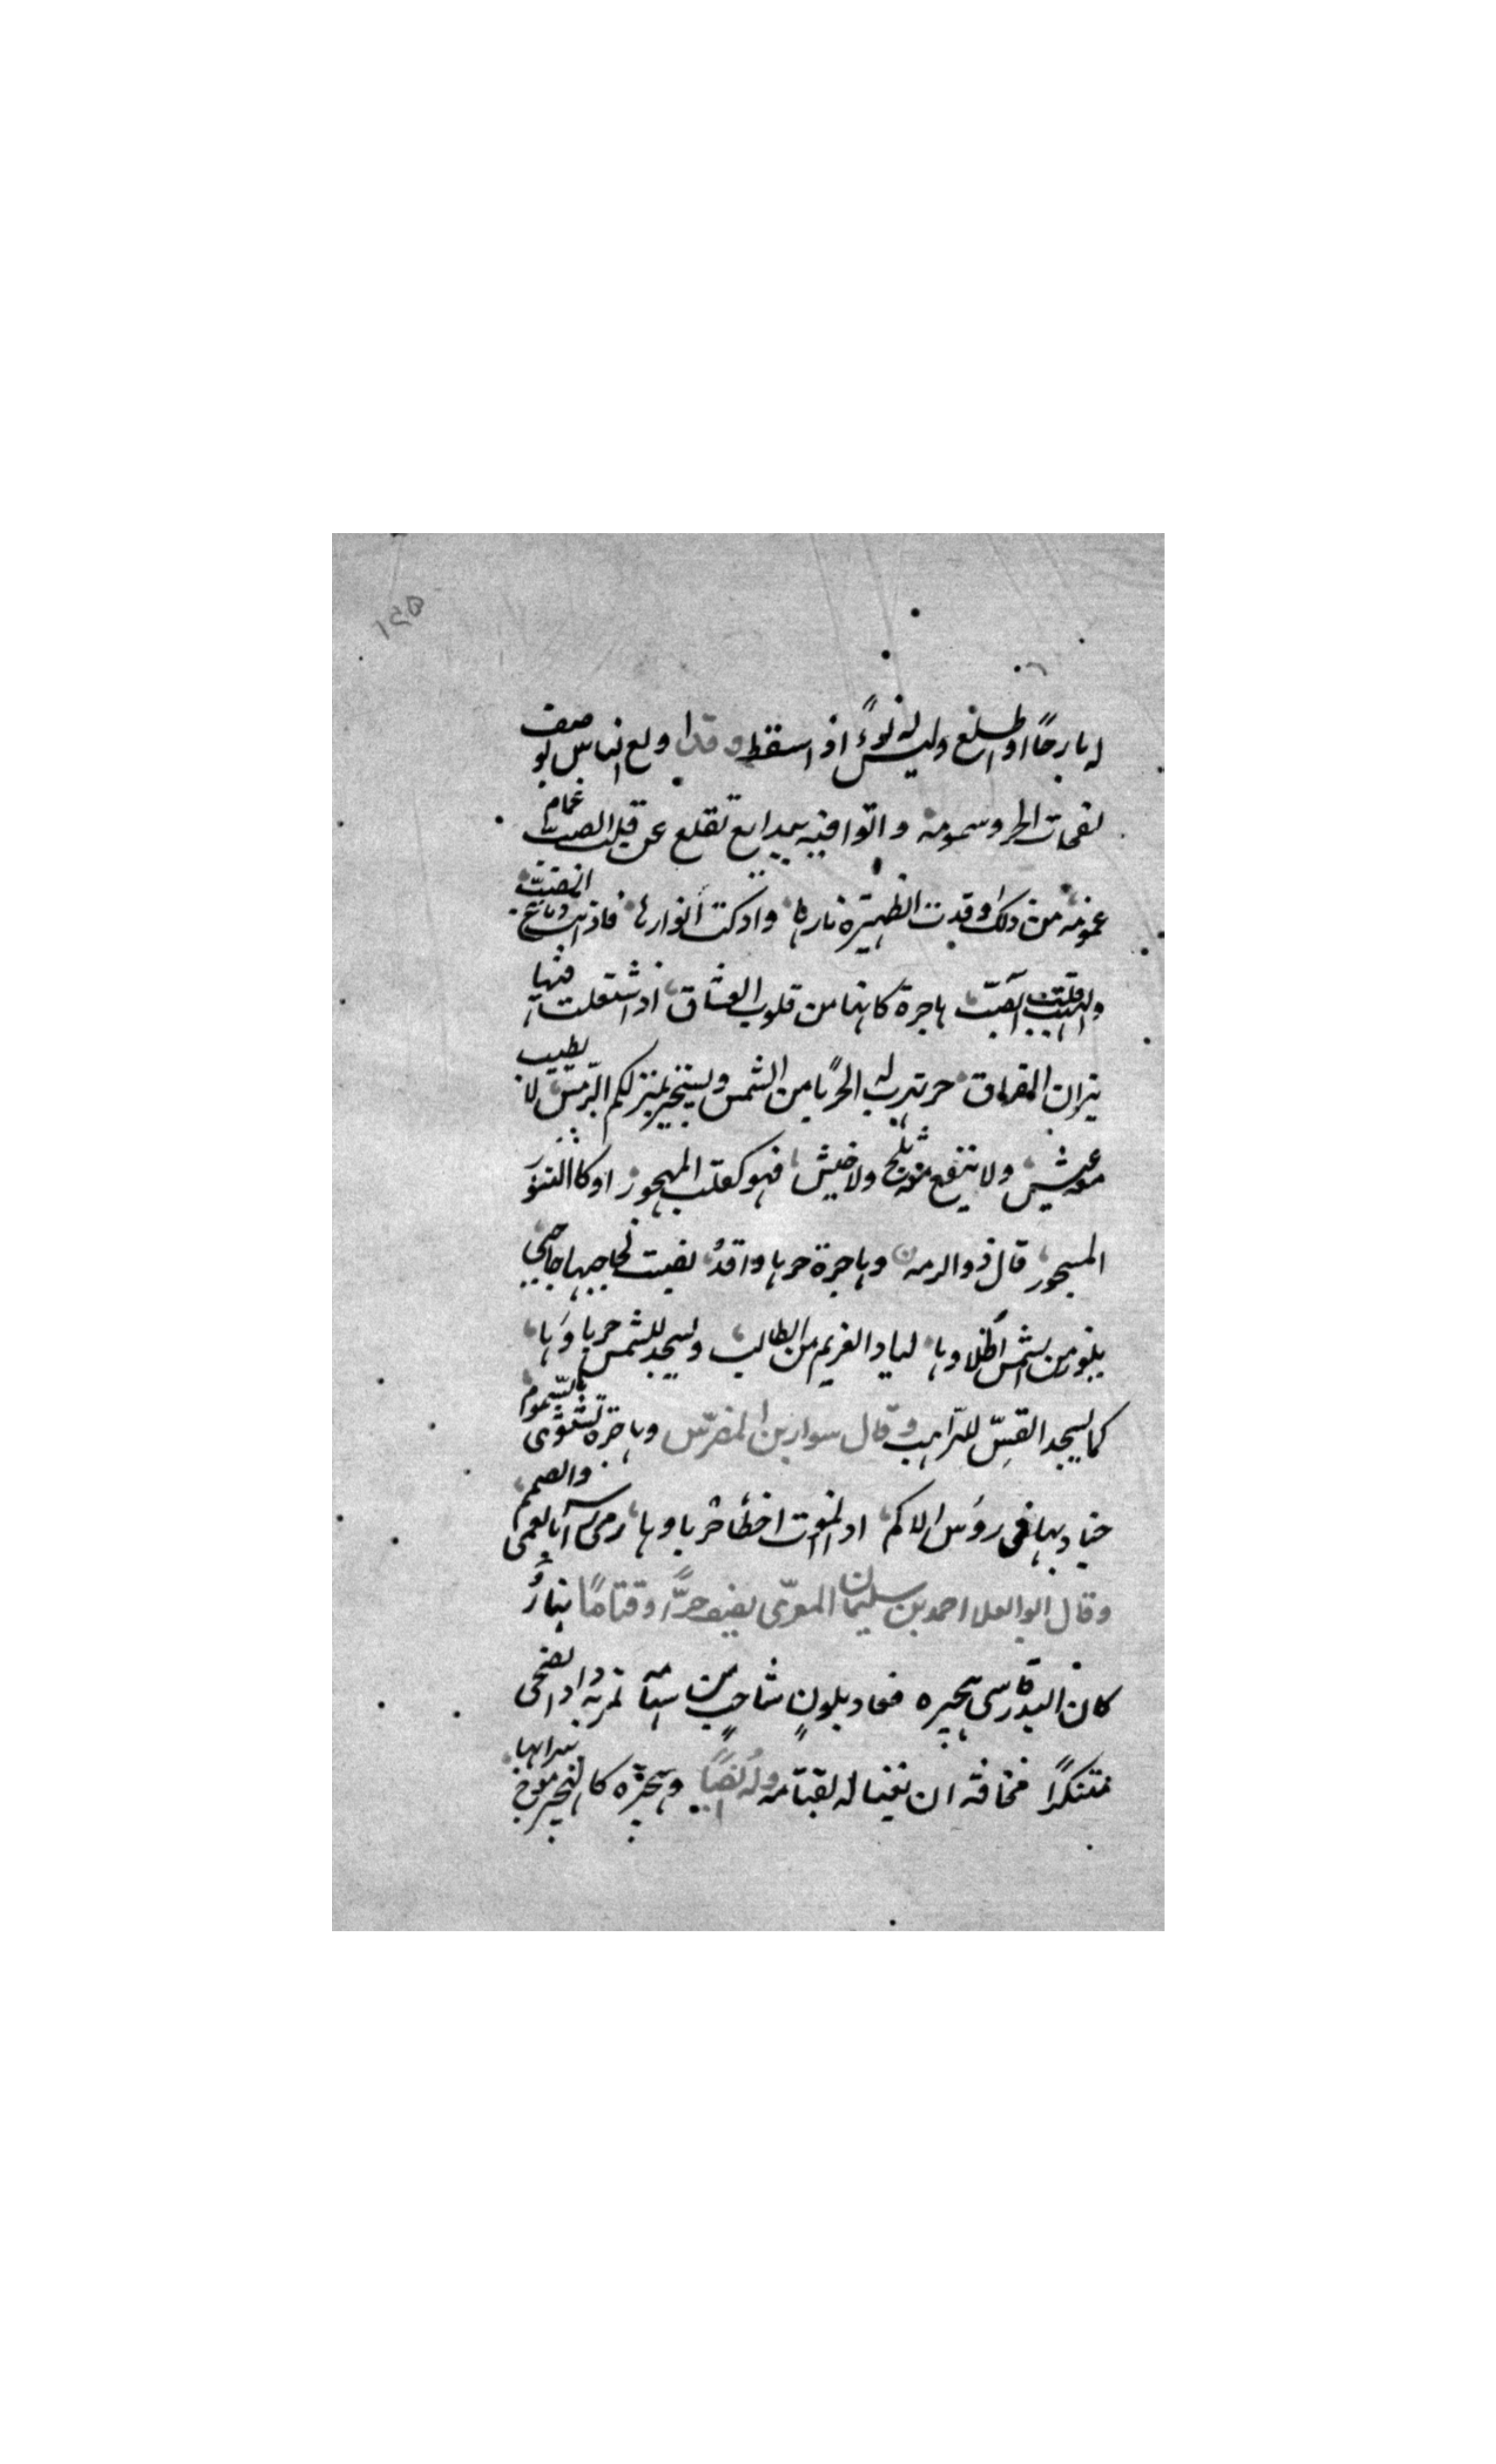 ١٤٥
له بارحًا اذا طلع وليس له نوءً اذا سقط وقد اولع الناس بوصف
لفحات الحر وسمومه واتوا فيه ببدايع تقلع عن قلب الصبّ غمام
غمومه من ذلك وقدت الظهيرة نارها واذكت انوارها فاذابت دماغ الضبّ
والهبت قلب الصّبّ هاجرة كانها من قلوب العشاق اذ اشتعلت فيها
نيران الفراق حر تهرب له الحربا من الشمس ويستجير بمنزلكم الرمس لا يطيب
معه عيش ولا ينفع معه ثلج ولا خيش فهو كقلب المهجور او كالتنور
المسجور قال ذو الرمه وهاجرة حرها واقدُ نصبت لحاجبها حاجبي
يلوذ من الشمس اطلاوها لياذ الغريم من الطالب وتسجد للشمس حرباوها
كما يسجد القسّ للراهب وقال سوار بن المضرّس وهاجرة تشتوى بالسّموم
جنادبها فى روس الاكم اذا الموت اخطا حرباوها رمى نفسه بالعمى والصمم
وقال ابو العلا احمد بن سليمان المعرّى يصف حرًّا وقتامًا بنهارُ
كان البدر قاسى هجيره فعاد بلونٍ شاحبٍ من سهامه تمر به راد الضحى
متنكرًا مخافة ان يغتاله بقتامه وله ايضًا وهجيرة كالهجر موج سرابها